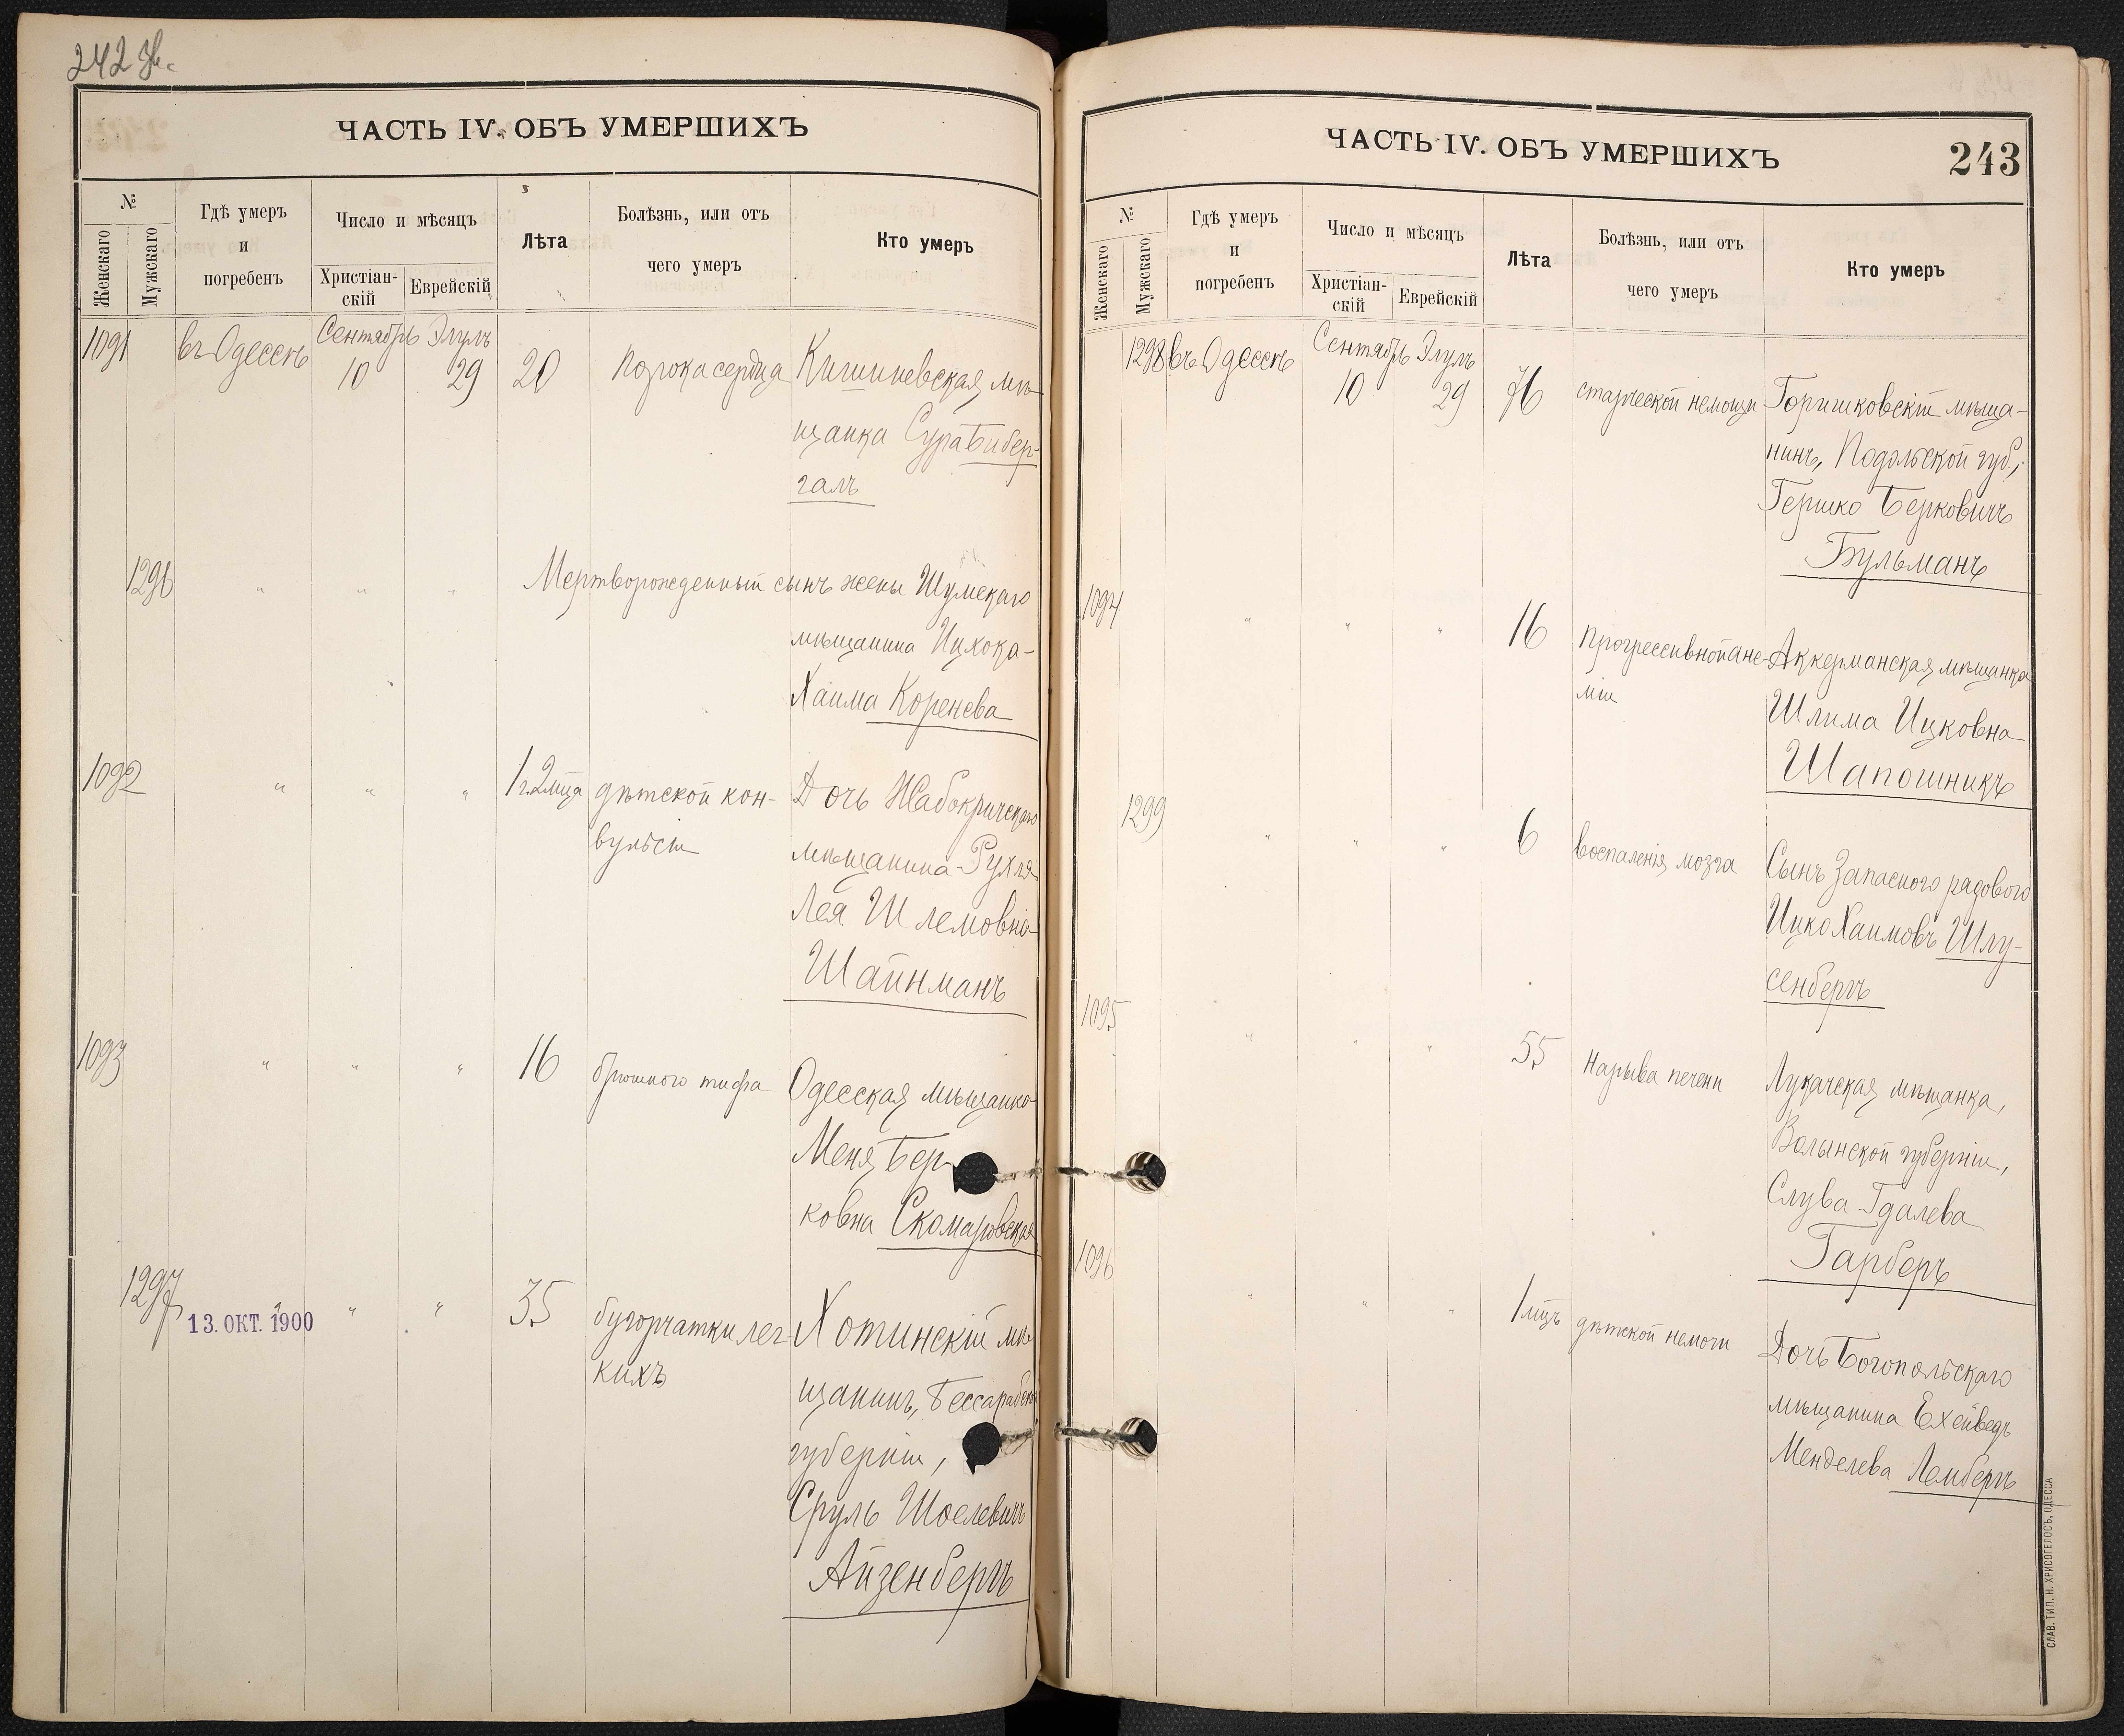 242 зв.
ЧАСТЬ IV. ОБЪ УМЕРШИХЪ
№
Женскаго
Мужскаго
Гдѣ умеръ
и
погребенъ
Число и мѣсяцъ
Христіан-
скій
Еврейскій
Лѣта
Болѣзнь, или отъ
чего умеръ
Кто умеръ
1091 въ Одессѣ Сентябрь 10 Элулъ 29 20 порока сердца Кишиневская мѣ-
щанка Сура Бибер-
галъ
1296 " " " Мертворожденный сынъ жены Шумскаго
мѣщанина Ицхока-
Хаима Коренева
1092 " " " 1 г. 2 мца дѣтской кон- Дочь Жабокричскаго
вульсіи мѣщанина Рухля
Лея Шлемовна
Шайнманъ
1093 " " " 16 брюшного тифа Одесская мѣщанка
Меня Бер-
ковна Скомаровская
1297 " " " 35 бугорчатки лег- Хотинскій мѣ-
13. ОКТ. 1900
кихъ щанинъ, Бессарабской
губерніи,
Сруль Шоелевичъ
Айзенбергъ
ЧАСТЬ IV. ОБЪ УМЕРШИХЪ
243
№
Женскаго
Мужскаго
Гдѣ умеръ
и
погребенъ
Число и мѣсяцъ
Христіан-
скій
Еврейскій
Лѣта
Болѣзнь, или отъ
чего умеръ
Кто умеръ
1298 въ Одессѣ Сентябрь 10 Элулъ 29 76 старческой немощи Горишковскій мѣща-
нинъ, Подольской губ.,
Гершко Берковичъ
Бульманъ
1094 " " " 16 прогрессивной ане- Аккерманская мѣщанка
міи Шлима Ицковна
Шапошникъ
1299 " " " 6 воспаленія мозга Сынъ Запасного рядового
Ицко Хаимовъ Шлу-
сенбергъ
1095 " " " 55 Нарыва печени Лукачская мѣщанка,
Волынской губерніи,
Слува Гдалева
Гарберъ
1096 " " " 1 мцъ дѣтской немочи Дочь Богопольскаго
мѣщанина Ехейведъ
Менделева Лембергъ
СЛАВ. ТИП. Н. ХРИСОГЕЛОСЪ, ОДЕССА